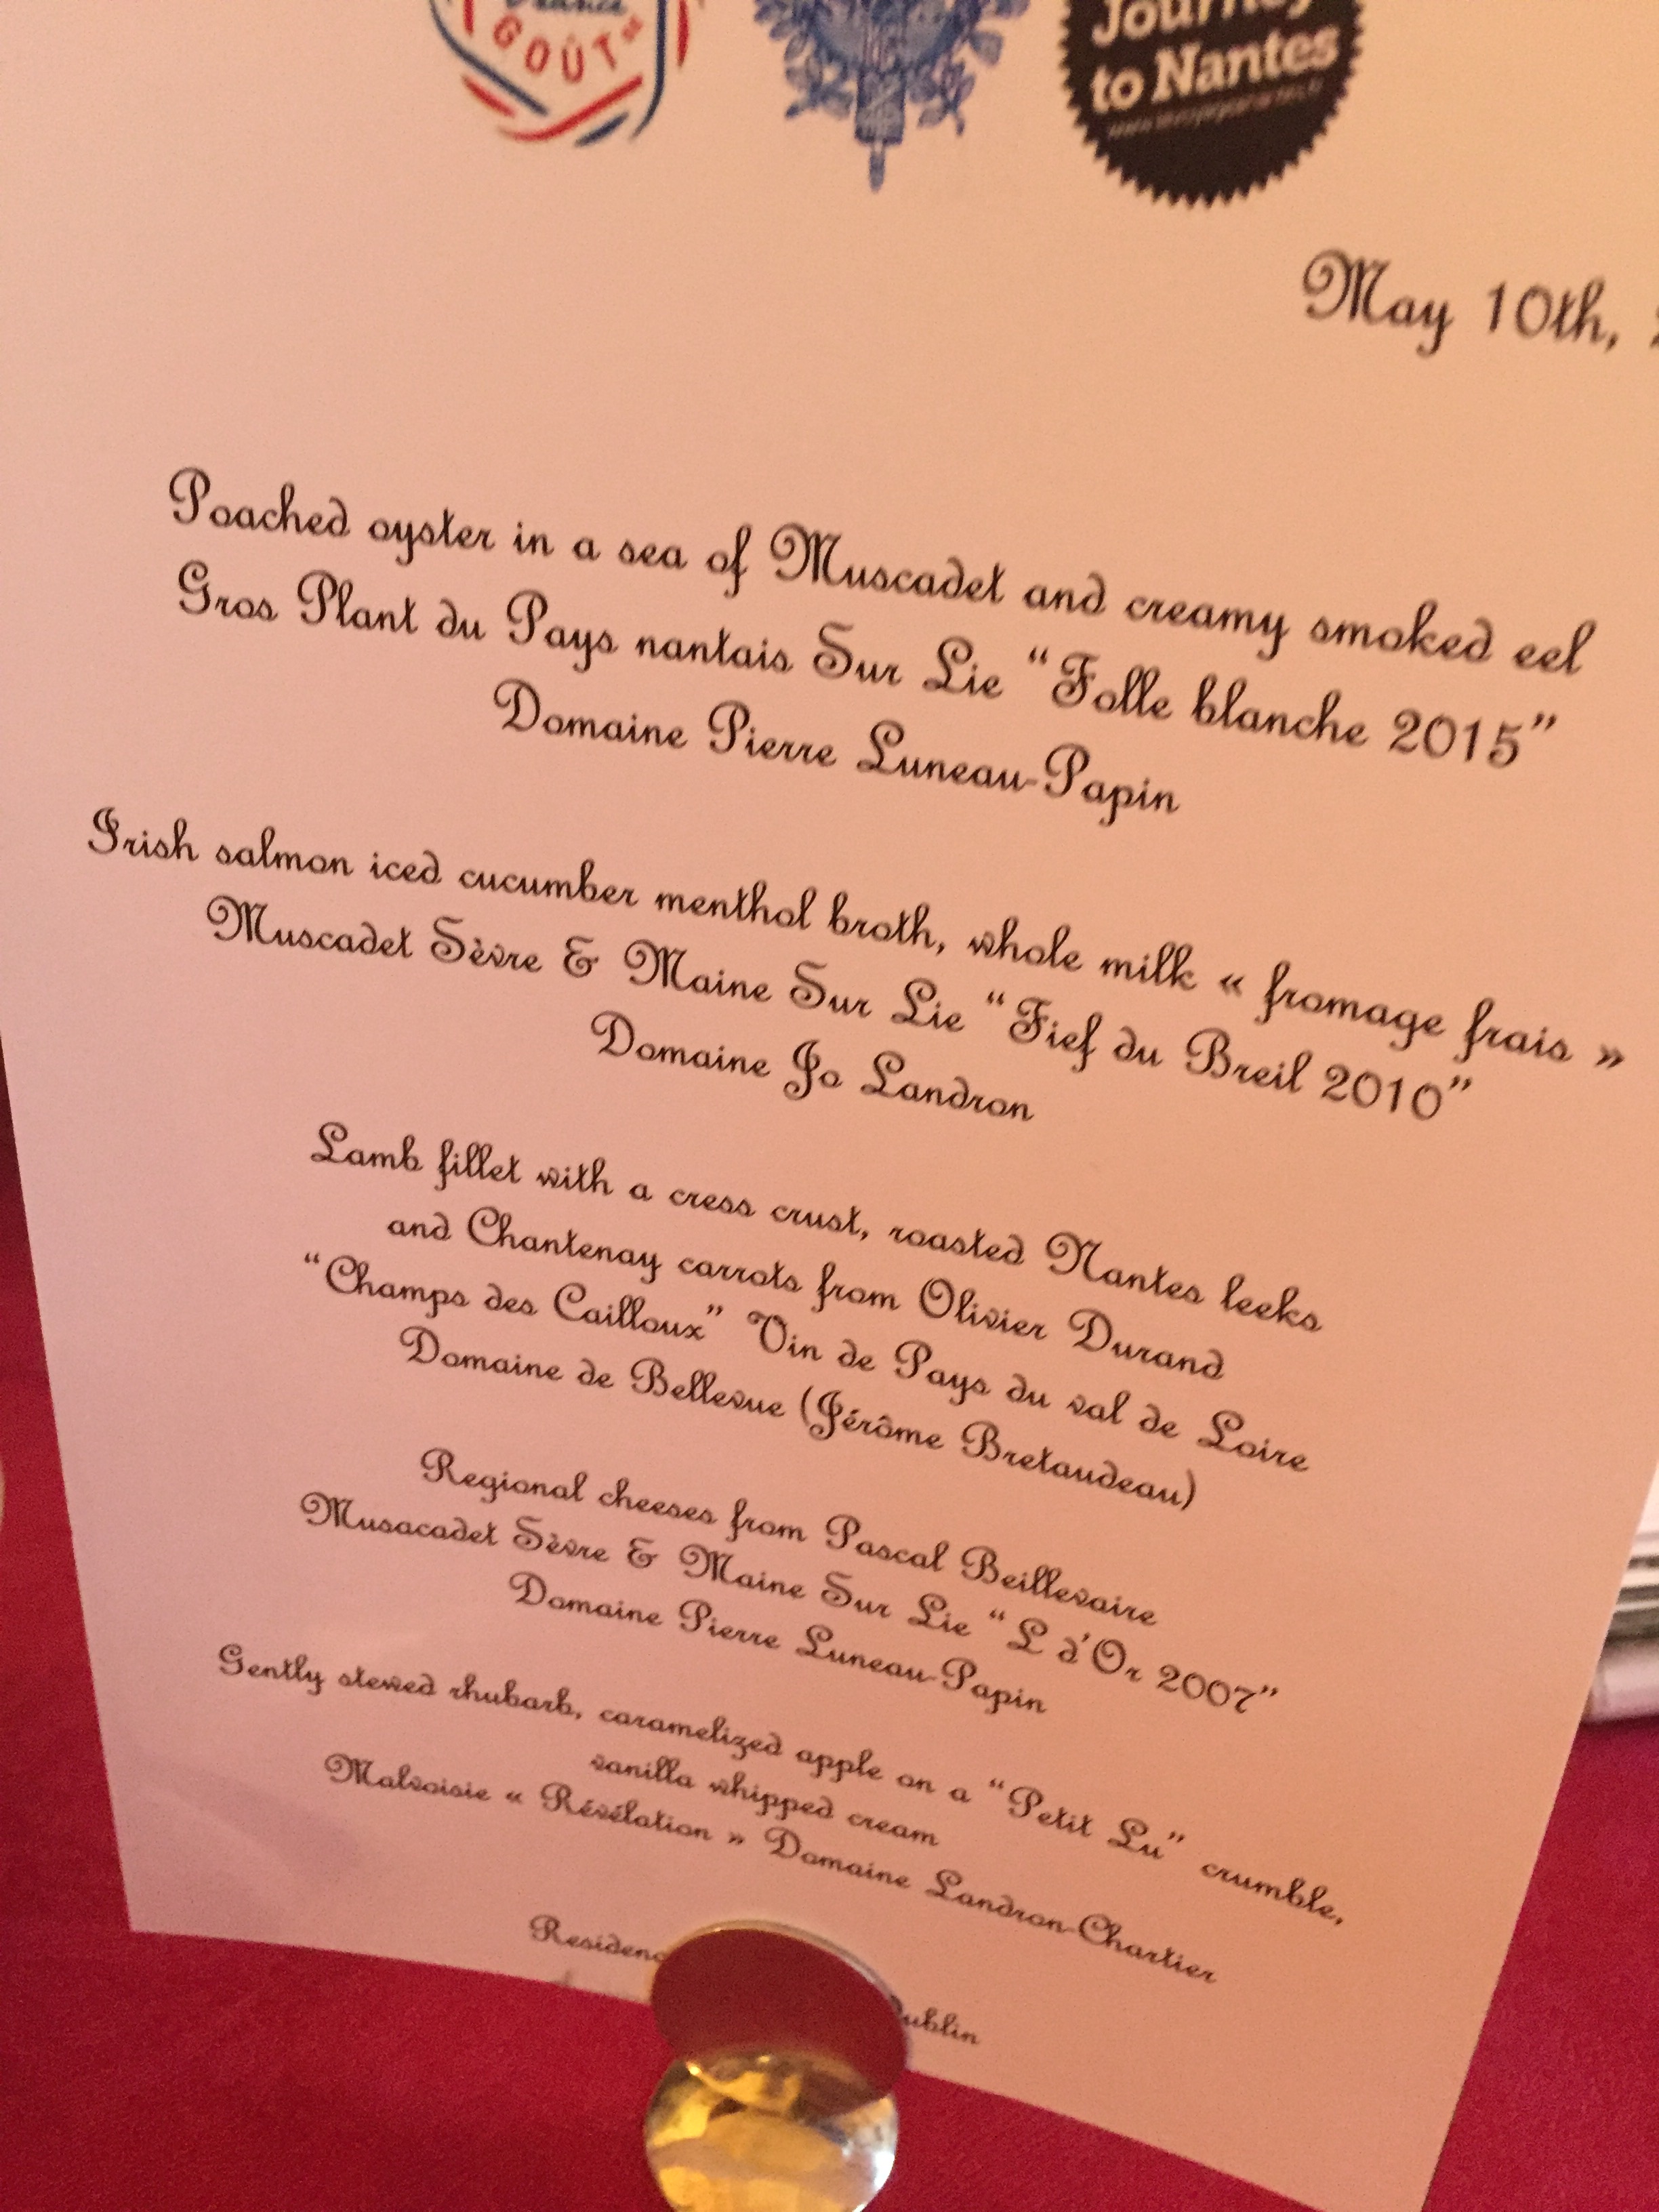 GOÛT
Journey
to Nantes
May 10th,
Poached oyster in a sea of Muscadet and creamy smoked eel
Gros Plant du Pays nantais Sur Lie “Folle blanche 2015”
Domaine Pierre Luneau-Papin
Irish salmon iced cucumber menthol broth, whole milk « fromage frais »
Muscadet Sèvre & Maine Sur Lie “Fief du Breil 2010”
Domaine Jo Landron
Lamb fillet with a cress crust, roasted Nantes leeks
and Chantenay carrots from Olivier Durand
“Champs des Cailloux” Vin de Pays du val de Loire
Domaine de Bellevue (Jérôme Bretaudeau)
Regional cheeses from Pascal Beillevaire
Musacadet Sèvre & Maine Sur Lie “L d'Or 2007”
Domaine Pierre Luneau-Papin
Gently stewed rhubarb, caramelized apple on a “Petit Lu” crumble,
vanilla whipped cream
Malvoisie « Révélation » Domaine Landron-Chartier